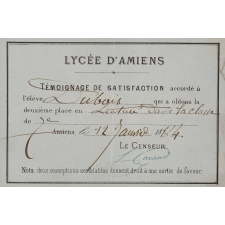 LYCÉE D'AMIENS
TÉMOIGNAGE DE SATISFACTION accordé à
l'élève Dubois qui a obtenu la
deuxième place en Lecture dans la classe
de 7e
Amiens, le 12 Janvier
LE CENSEUR,
Nota. deux exemptions semblables donnent droit à une sortie de faveur.